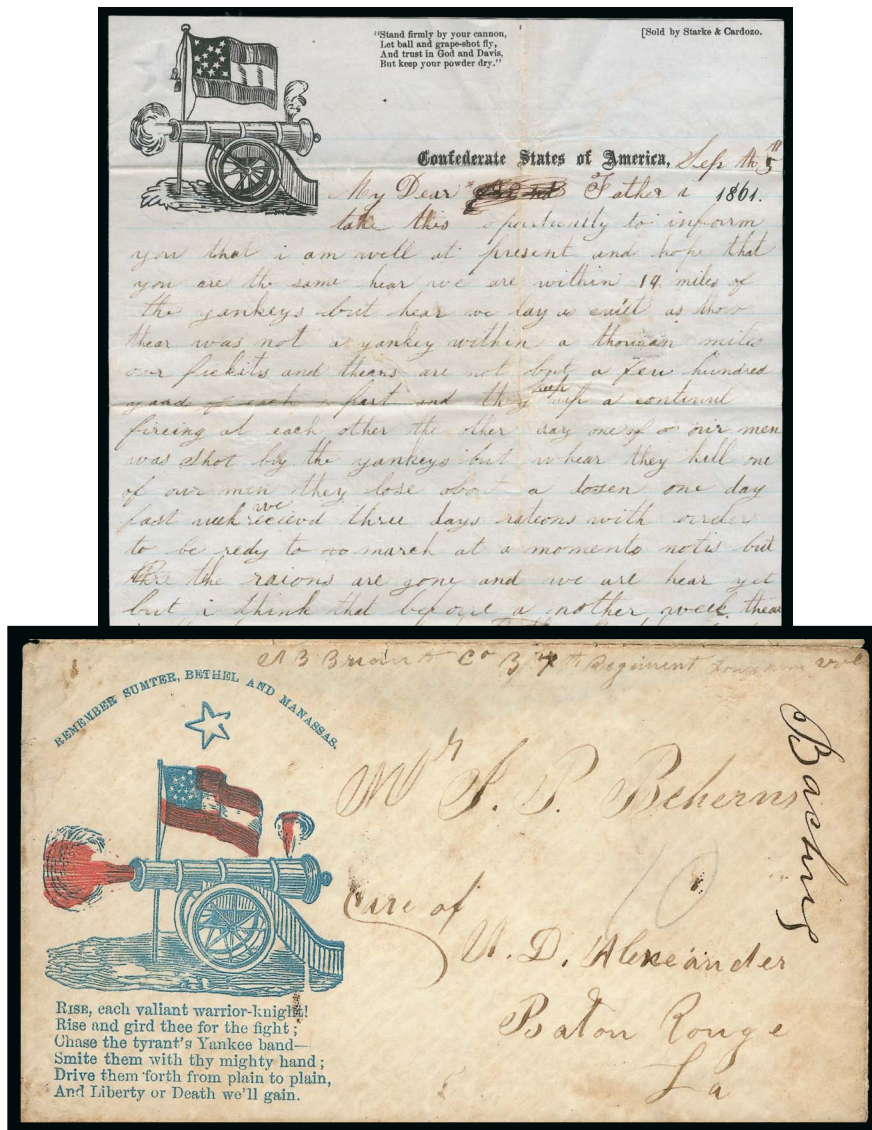 "Stand firmly by your cannon,
Let ball and grape-shot fly,
And trust in God and Davis,
But keep your powder dry."
[Sold by Starke & Cardozo.
Confederate States of America, Sep th
1861.
My Dear Father i
take this oportunity to inform
you that i am well at present and hope that
you are the same hear we are within 14 miles of
the yankeys but hear we lay as as
thear was not a yankey within a miles
our pickits and thears are not a few hundred
yaard of each a part and they keep up a continul
fireing at each other the other day one of our men
was shot by the yankeys but whear they kill one
of our men they lose about a dosen one day
last week we recievd three days rations with orders
to be redy to march at a moments notis but
the raions are gone and we are hear yet
but i think that before a nother week thear
A B Co B 4th Regiment vol
REMEMBER SUMTER, BETHEL AND MANASSAS.
Mr S. P. Beherns
Care of
Alexeander
Baton Rouge
La
10
RISE, each valiant warrior-knight!
Rise and gird thee for the fight;
Chase the tyrant's Yankee band—
Smite them with thy mighty hand;
Drive them forth from plain to plain,
And Liberty or Death we'll gain.